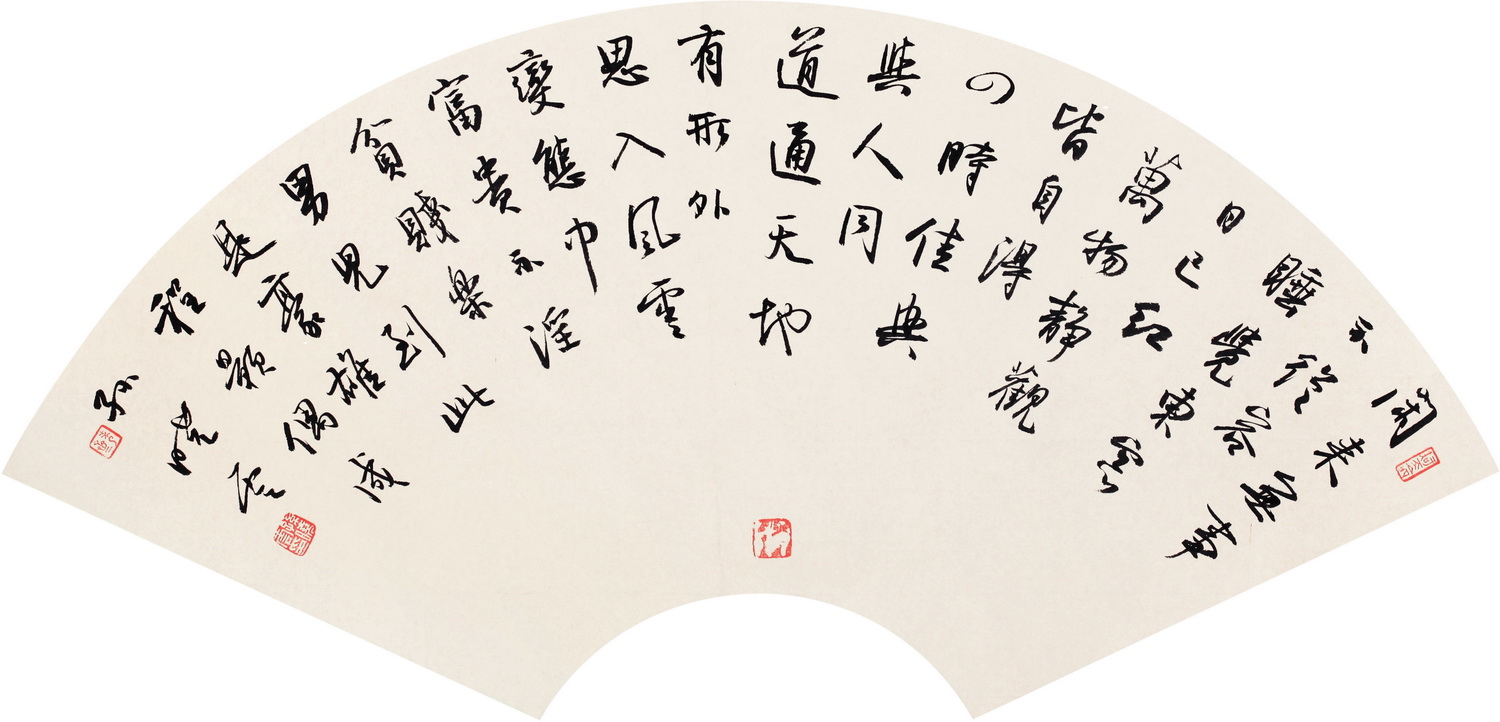 閒來無事
不從容
睡覺東窗
日已紅
萬物靜觀
皆自得
四時佳興
與人同
道通天地
有形外
思入風雲
變態中
富貴不淫
貧賤樂
男兒到此
是豪雄
程顥偶成
孫曉雲